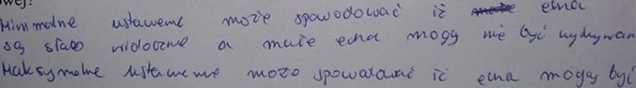 Minimalne ustawienie może spowodować iż echa
są słabo widoczne a małe echa mogą nie być wykrywan
Maksymalne ustawienie może spowodować iż echa mogą być